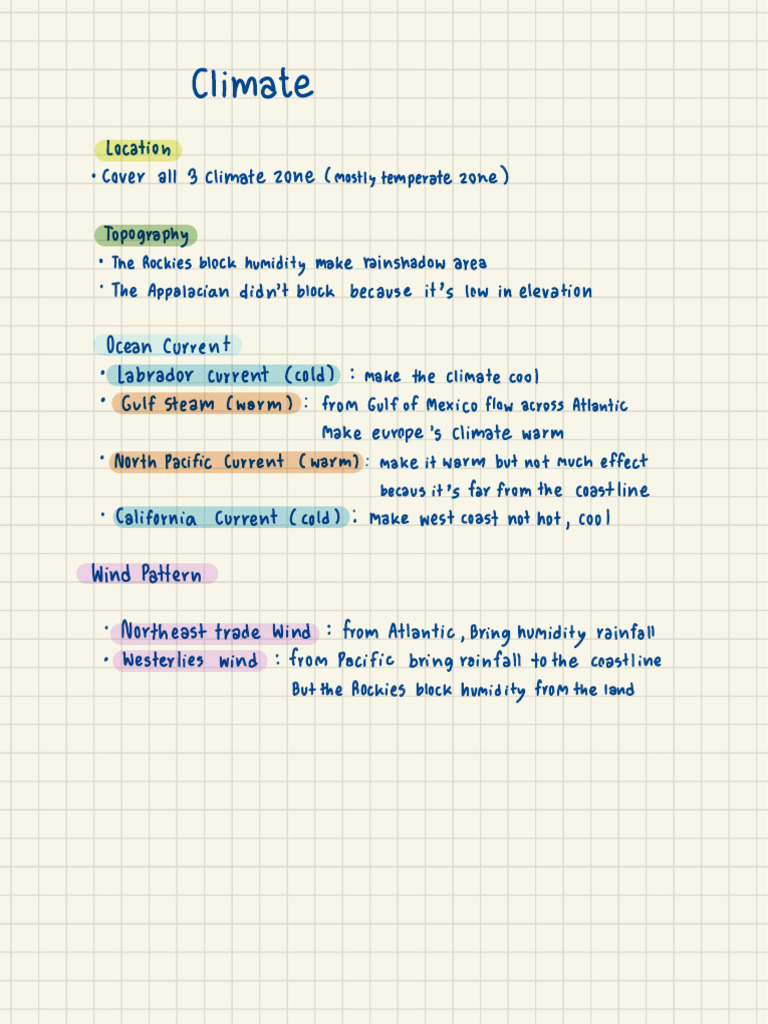 Climate
Location
• Cover all 3 climate zone (mostly temperate zone)
Topography
• The Rockies block humidity make rainshadow area
• The Appalacian didn't block because it's low in elevation
Ocean Current
• Labrador current (cold) : make the climate cool
• Gulf Steam (warm) : from Gulf of Mexico flow across Atlantic
Make europe's climate warm
• North Pacific Current (warm) : make it warm but not much effect
becaus it's far from the coastline
• California Current (cold) : Make west coast not hot, cool
Wind Pattern
• Northeast trade Wind : from Atlantic, Bring humidity rainfall
• Westerlies wind : from Pacific bring rainfall to the coastline
But the Rockies block humidity from the land